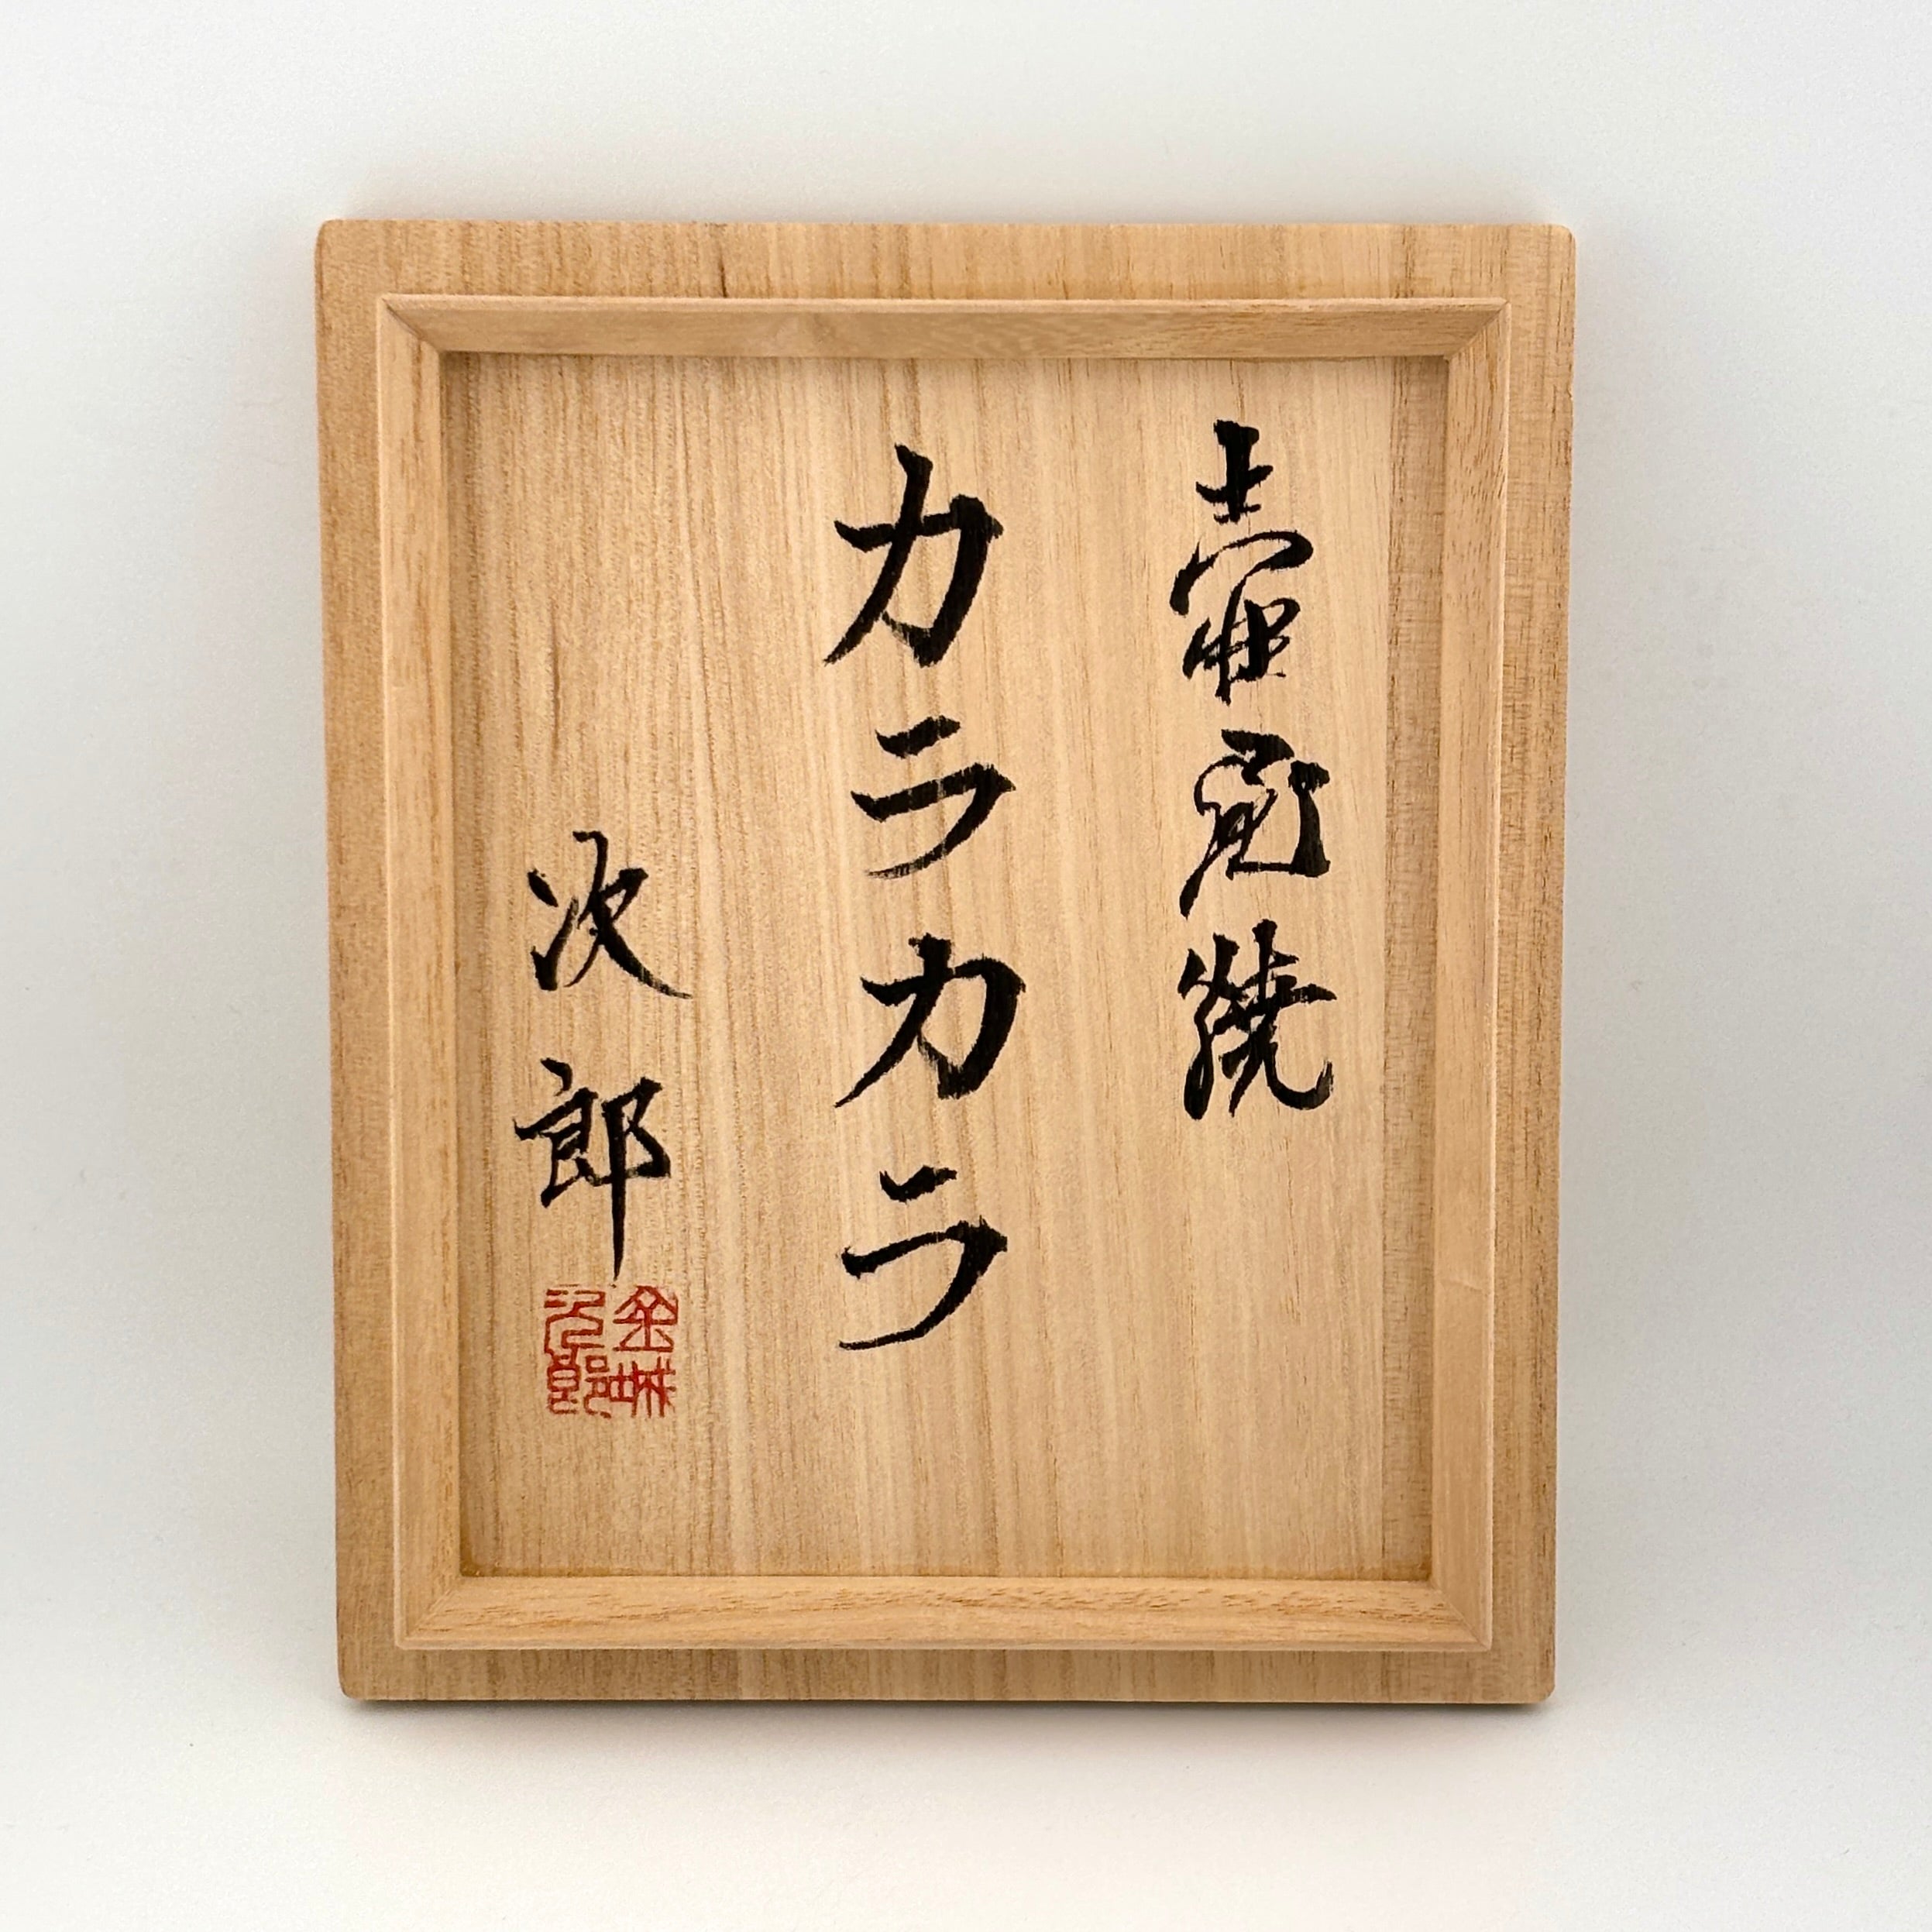 壺屋焼
カラカラ
次郎
金城次郎